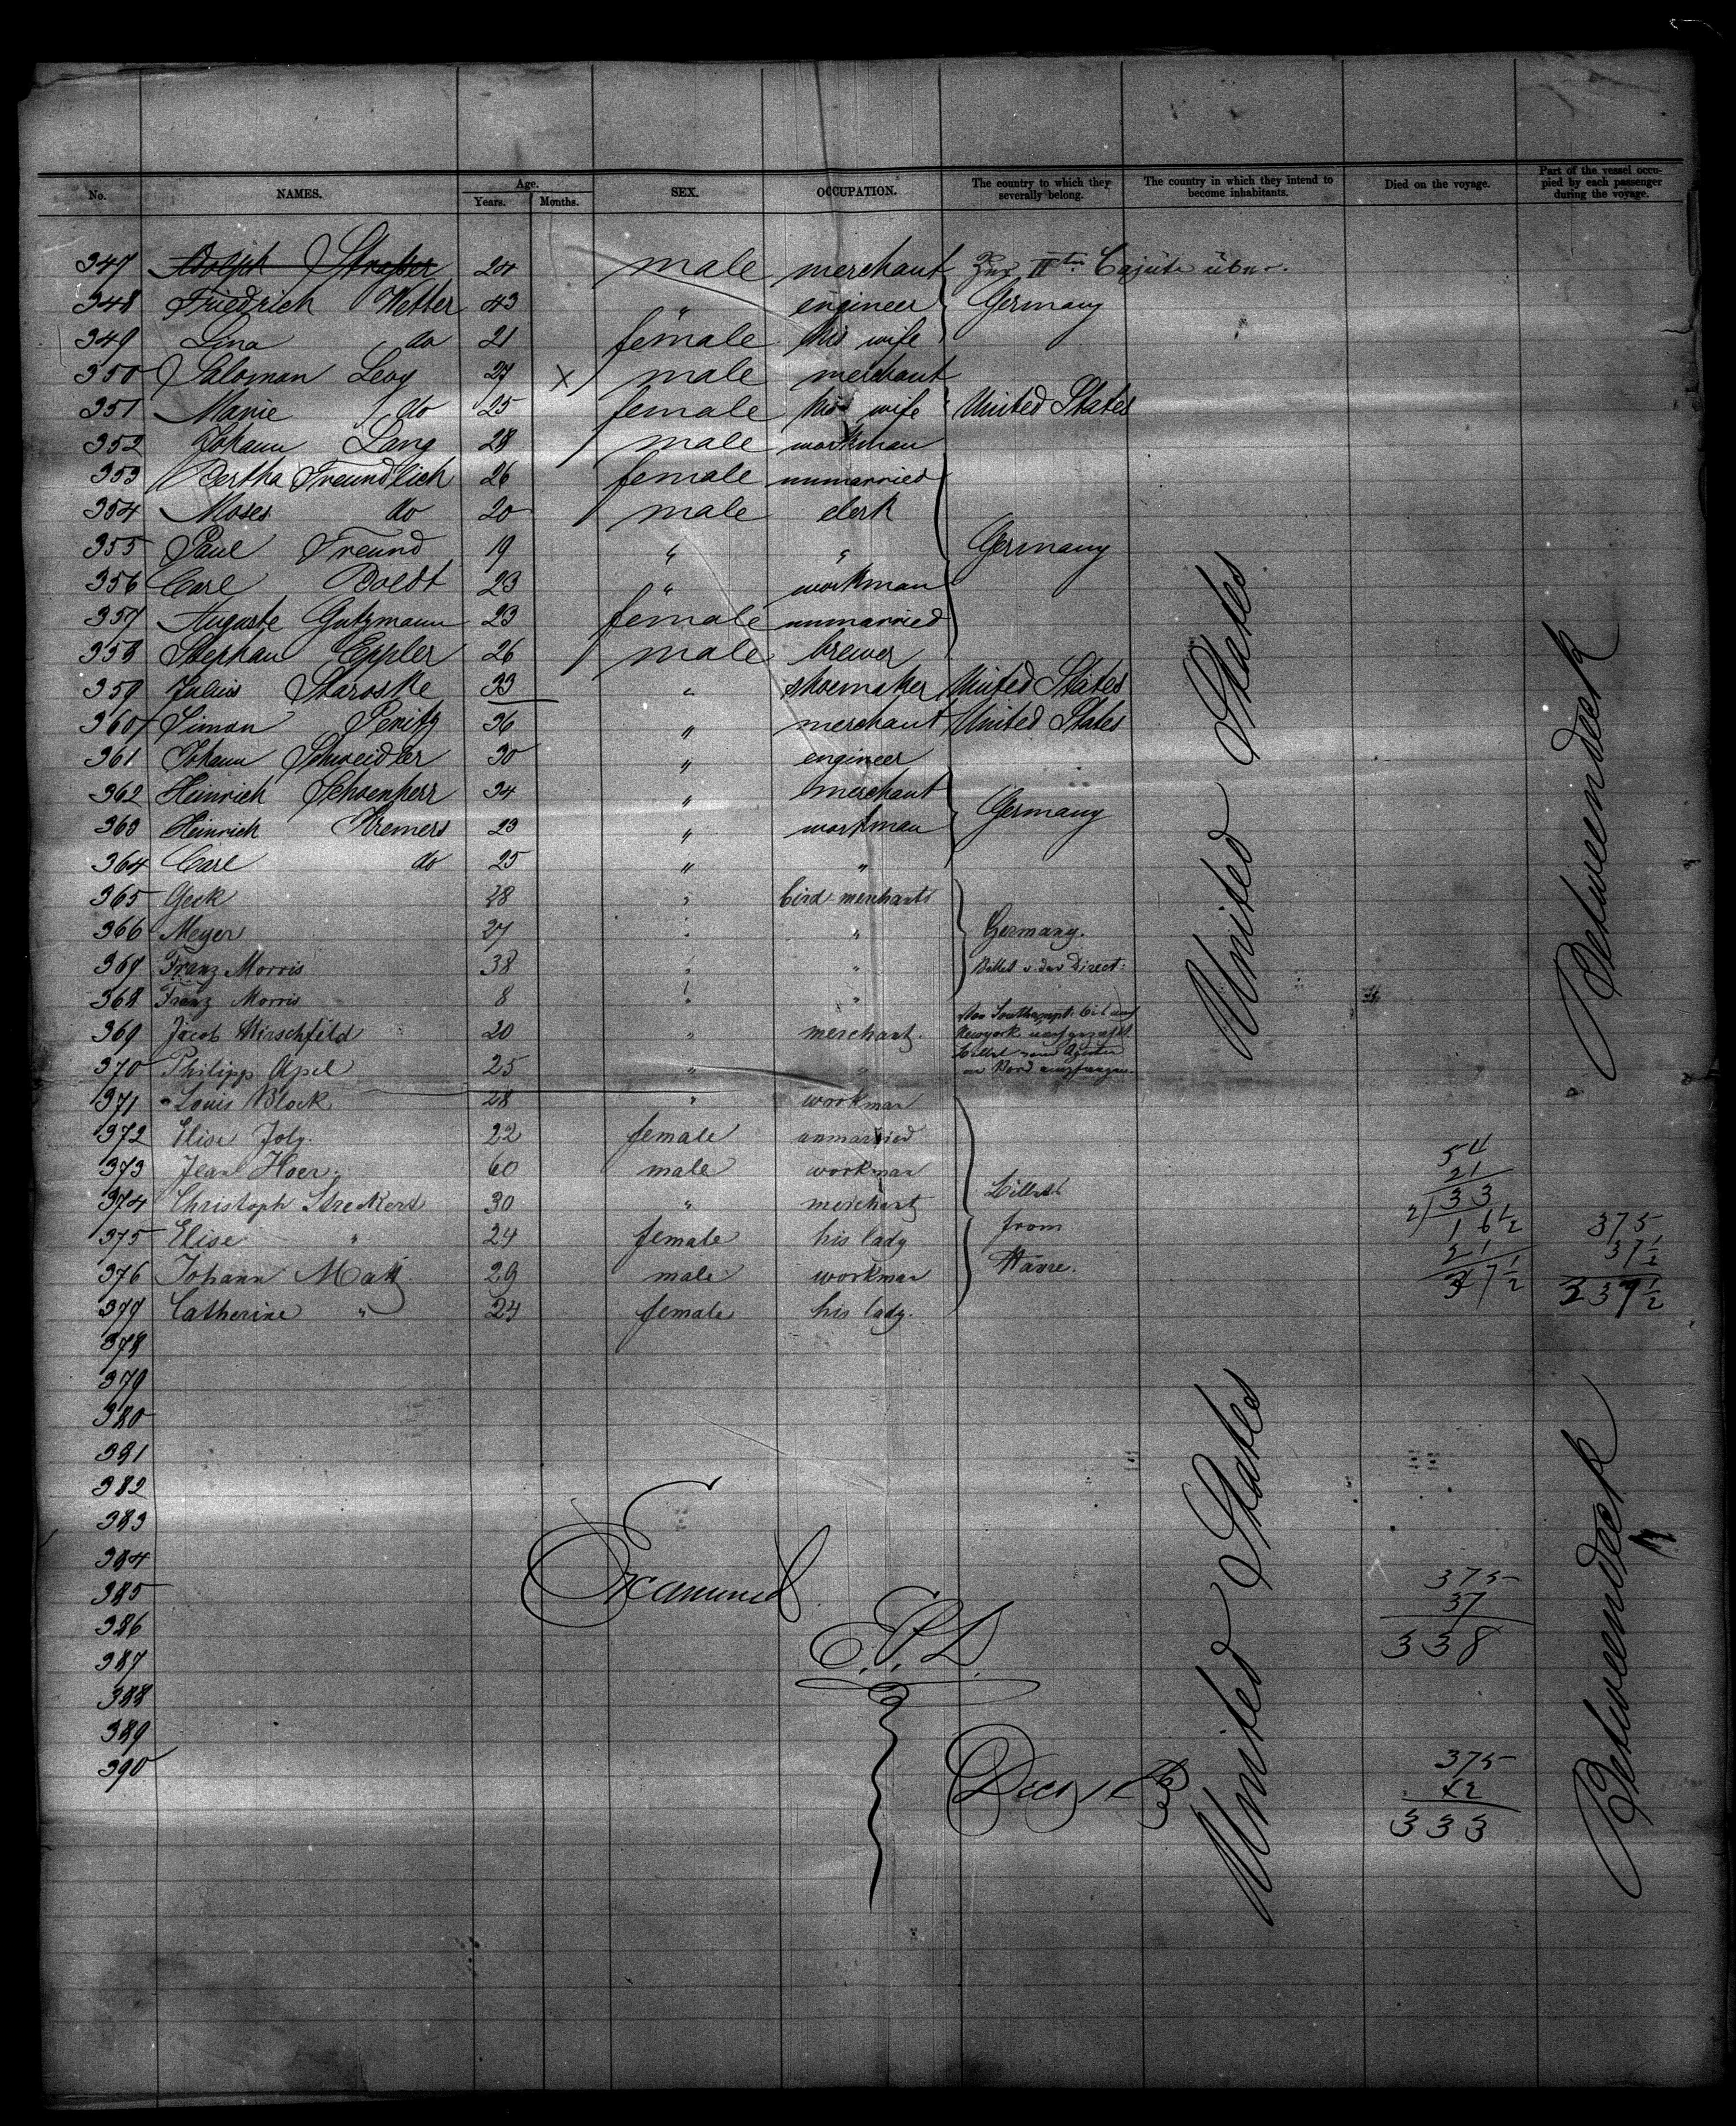 No. NAMES. Age. Years. Months. SEX. OCCUPATION. The country to which they severally belong. The country in which they intend to become inhabitants. Died on the voyage. Part of the vessel occupied by each passenger during the voyage.
347 Adolph Strasser 24 male merchant Zur IIten Cajüte über.
348 Friedrich Wetter 43 " engineer Germany
349 Lina do 21 female his wife
350 Saloman Levy 27 X male merchant
351 Marie do 25 female his wife United States
352 Johann Lang 28 male workman
353 Bertha Freundlich 26 female unmarried
354 Moses do 20 male clerk
355 Paul Freund 19 " " Germany
356 Carl Boldt 23 " workman
357 Auguste Gutzmann 23 female unmarried
358 Stephan Eppler 26 male brewer
359 Julius Staroske 33 " shoemaker United States
360 Simon Peritz 36 " merchant United States
361 Johann Schneidler 30 " engineer
362 Heinrich Schoenherr 34 " merchant Germany
363 Heinrich Kremers 23 " workman
364 Carl do 25 " "
365 Geck 28 " bird merchants
366 Meyer 27 " " Germany.
367 Franz Morris 38 " " Billet v. der Direct:
368 Franz Morris 8 " "
369 Jacob Hirschfeld 20 " merchant. Newyork
370 Philipp Apel 25 " " an Bord
371 Louis Block 28 " workman
372 Elise Joly. 22 female unmarried
373 Jean Hoer. 60 male workman
374 Christoph Streckert 30 " merchant Billets
375 Elise " 24 female his lady from
376 Johann Matz 29 male workman Havre.
377 Catherine " 24 female his lady.
378
379
380
381
382
383
384
385
386
387
388
389
390
United States
Betweendeck
54
21
33
2) 16½
21
37½
375
37½
337½
Examined
E.P.D.
Decr
United States
Betweendeck
375
37
338
375
42
333